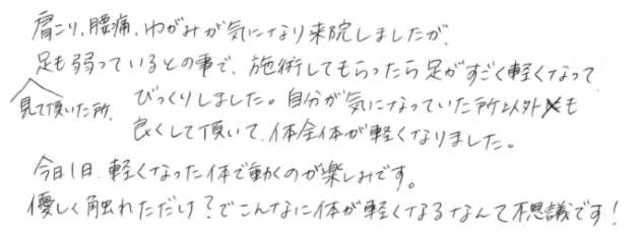 肩こり、腰痛、ゆがみが気になり来院しましたが、
足も弱っているとの事で、施術してもらったら足がすごく軽くなって
見て頂いた所、びっくりしました。自分が気になっていた所以外も
良くして頂いて、体全体が軽くなりました。
今日1日、軽くなった体で動くのが楽しみです。
優しく触れただけ?でこんなに体が軽くなるなんて不思議です!